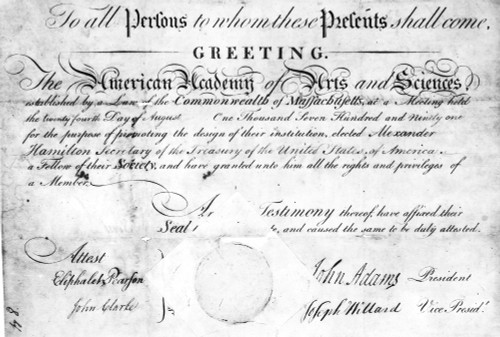 To all Persons to whom these Presents shall come,
GREETING.
The American Academy of Arts and Sciences,
established by a Law of the Commonwealth of Massachusetts, at a Meeting held
the twenty fourth Day of August One Thousand Seven Hundred and Ninety one
for the purpose of promoting the design of their institution, elected Alexander
Hamilton Secretary of the Treasury of the United States, of America
a Fellow of their Society, and have granted unto him all the rights and privileges of
a Member.
In Testimony thereof, have affixed their
Seal and caused the same to be duly attested.
Attest
Eliphalet Pearson
John Clarke
John Adams President
Joseph Willard Vice Presidt.